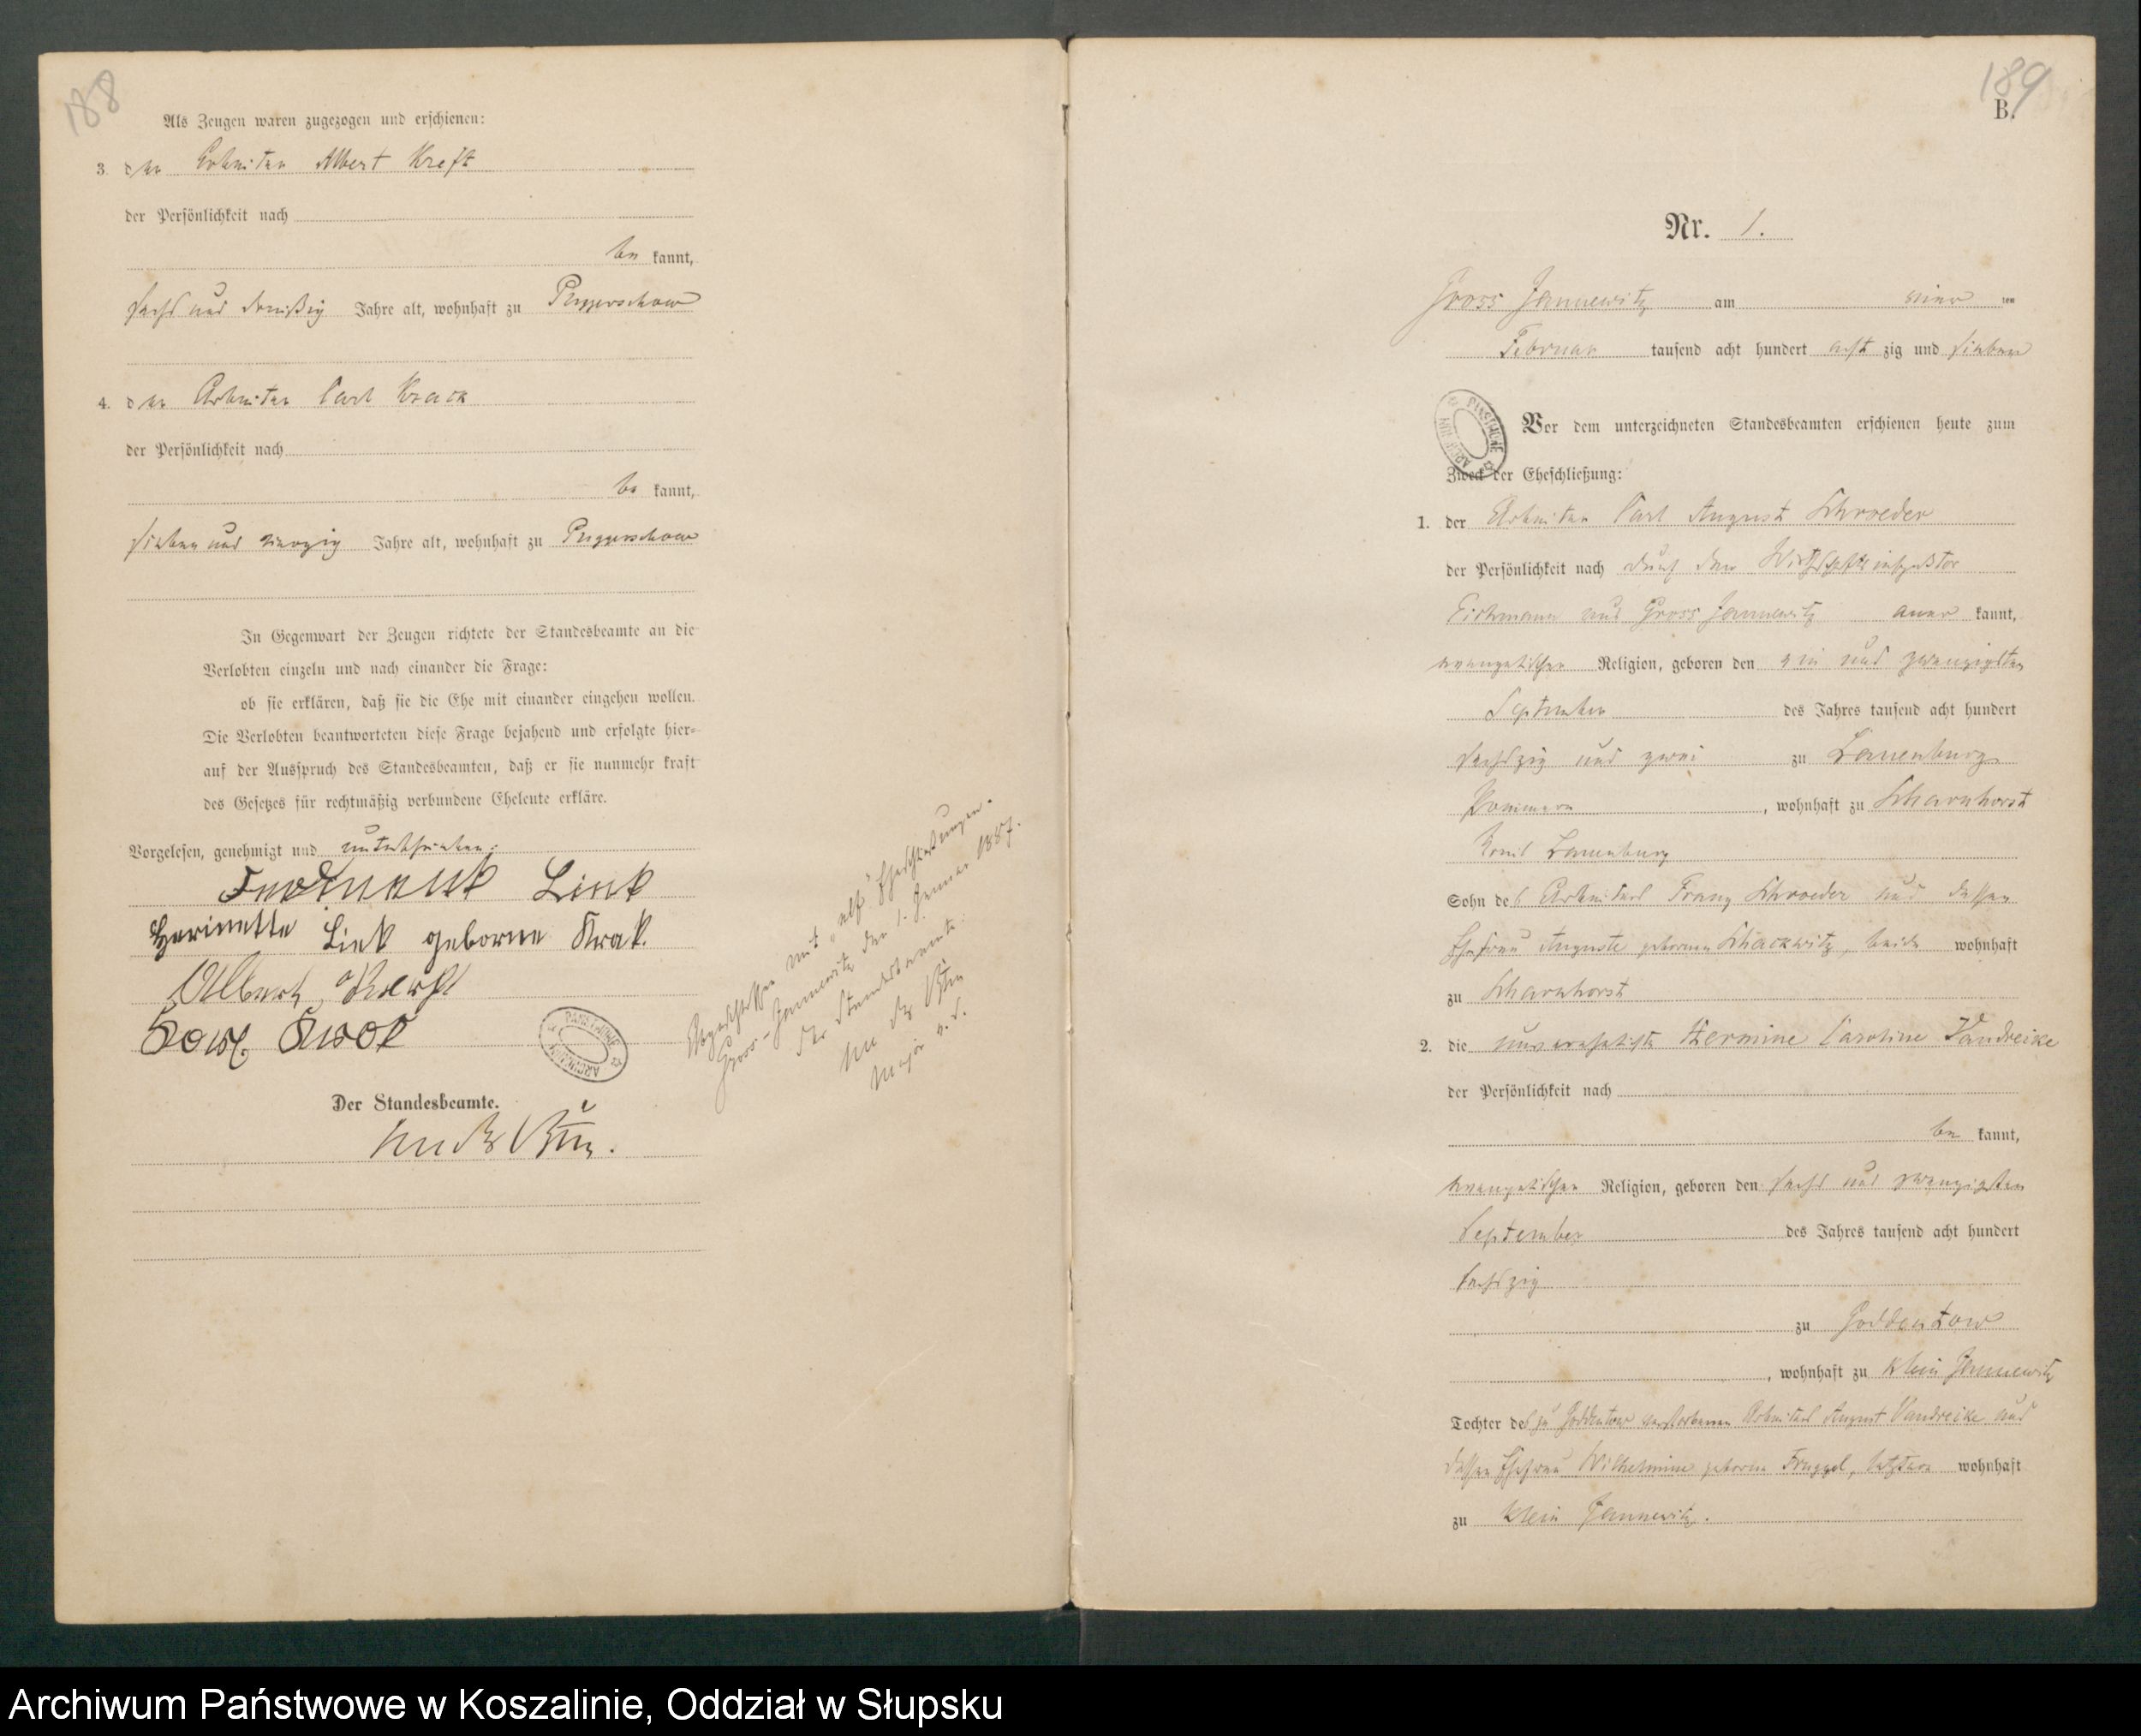 188
Als Zeugen waren zugezogen und erschienen:
3. der Arbeiter Albert Kreft
der Persönlichkeit nach
be kannt,
sechs und dreißig Jahre alt, wohnhaft zu Puggerschow
4. der Arbeiter Carl Krack
der Persönlichkeit nach
be kannt,
sieben und vierzig Jahre alt, wohnhaft zu Puggerschow
In Gegenwart der Zeugen richtete der Standesbeamte an die
Verlobten einzeln und nach einander die Frage:
ob sie erklären, daß sie die Ehe mit einander eingehen wollen.
Die Verlobten beantworteten diese Frage bejahend und erfolgte hier-
auf der Ausspruch des Standesbeamten, daß er sie nunmehr kraft
des Gesetzes für rechtmäßig verbundene Eheleute erkläre.
Vorgelesen, genehmigt und unterschrieben:
Ferdinand Link
Henriette Link geborne Krak.
Albert Kreft
Karl Krak
Der Standesbeamte.
Abgeschlossen mit "elf" Eheschließungen.
Gross-Jannewitz den 1. Januar 1887.
Der Standesbeamte:
Major a. D.
189
B.
Nr. 1.
Gross Jannewitz am vier ten
Februar tausend acht hundert acht zig und sieben
Vor dem unterzeichneten Standesbeamten erschienen heute zum
Zweck der Eheschließung:
1. der Arbeiter Carl August Schroeder
der Persönlichkeit nach durch den Wirthschaftsinspektor
Eichmann aus Gross Jannewitz aner kannt,
evangelischer Religion, geboren den ein und zwanzigsten
September des Jahres tausend acht hundert
sechszig und zwei zu Lauenburg
Pommern, wohnhaft zu Scharnhorst
Kreis Lauenburg
Sohn des Arbeiters Franz Schroeder und dessen
Ehefrau Auguste geborenen Schackwitz, beide wohnhaft
zu Scharnhorst
2. die unverehelichte Hermine Caroline Vandreike
der Persönlichkeit nach
be kannt,
evangelischer Religion, geboren den sechs und zwanzigsten
September des Jahres tausend acht hundert
sechszig
zu Goddentow
, wohnhaft zu Klein Jannewitz
Tochter des zu Goddentow verstorbenen Arbeiters August Vandreike und
dessen Ehefrau Wilhelmine geborne Truggel, letztere wohnhaft
zu Klein Jannewitz.
Archiwum Państwowe w Koszalinie, Oddział w Słupsku